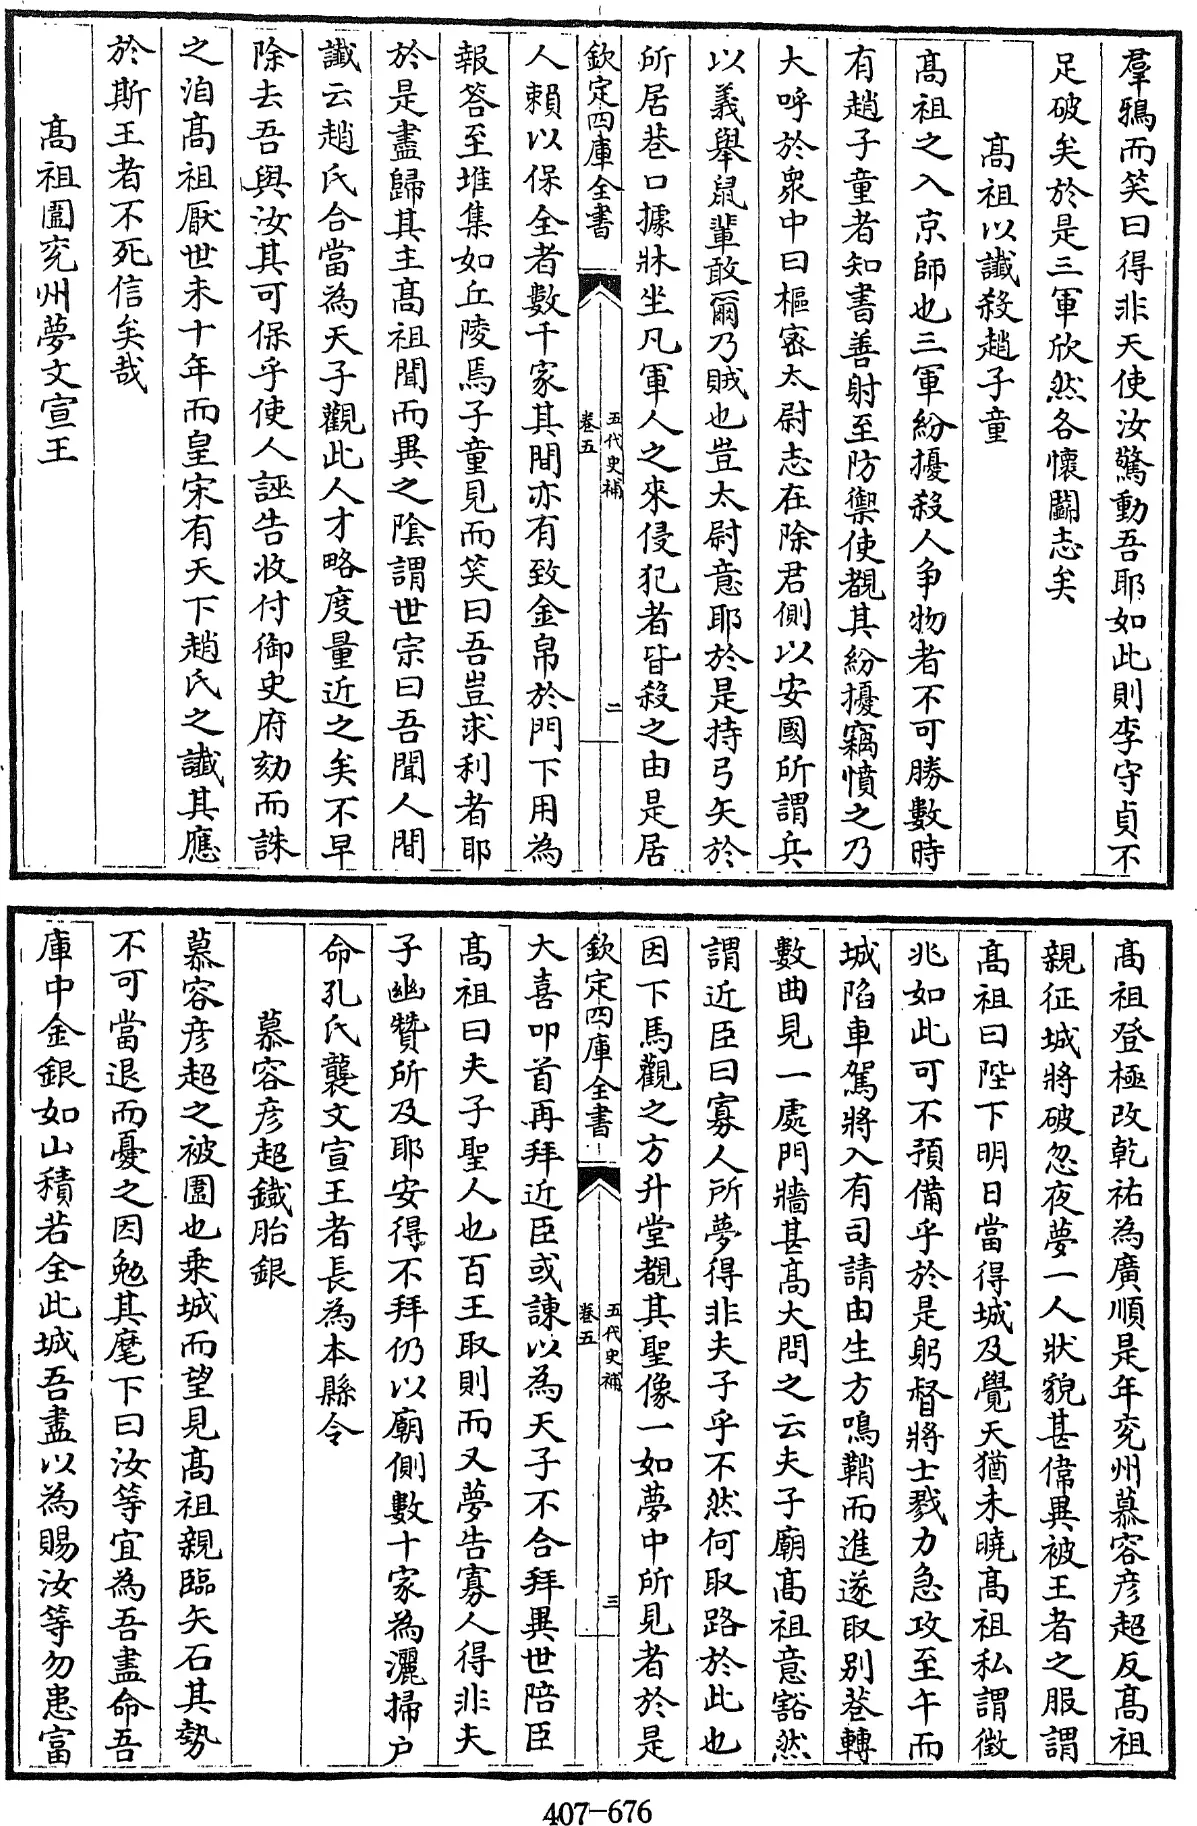 羣鴉而笑曰得非天使汝驚動吾耶如此則李守貞不
足破矣於是三軍欣然各懷鬭志矣
高祖以讖殺趙子童
高祖之入京師也三軍紛擾殺人爭物者不可勝數時
有趙子童者知書善射至防禦使覩其紛擾竊憤之乃
大呼於衆中曰樞密太尉志在除君側以安國所謂兵
以義舉鼠輩敢爾乃賊也豈太尉意耶於是持弓矢於
所居巷口據牀坐凡軍人之來侵犯者皆殺之由是居
欽定四庫全書
五代史補
卷五
二
人賴以保全者數千家其間亦有致金帛於門下用為
報答至堆集如丘陵焉子童見而笑曰吾豈求利者耶
於是盡歸其主高祖聞而異之陰謂世宗曰吾聞人間
讖云趙氏合當為天子觀此人才略度量近之矣不早
除去吾與汝其可保乎使人誣告收付御史府劾而誅
之洎高祖厭世未十年而皇宋有天下趙氏之讖其應
於斯王者不死信矣哉
高祖圍兖州夢文宣王
高祖登極改乾祐為廣順是年兖州慕容彦超反高祖
親征城將破忽夜夢一人狀貌甚偉異被王者之服謂
高祖曰陛下明日當得城及覺天猶未曉高祖私謂徵
兆如此可不預備乎於是躬督將士戮力急攻至午而
城陷車駕將入有司請由生方鳴鞘而進遂取别巷轉
數曲見一處門牆甚高大問之云夫子廟高祖意豁然
謂近臣曰寡人所夢得非夫子乎不然何取路於此也
因下馬觀之方升堂覩其聖像一如夢中所見者於是
欽定四庫全書
五代史補
卷五
三
大喜叩首再拜近臣或諫以為天子不合拜異世陪臣
高祖曰夫子聖人也百王取則而又夢告寡人得非夫
子幽贊所及耶安得不拜仍以廟側數十家為灑掃户
命孔氏襲文宣王者長為本縣令
慕容彦超鐵胎銀
慕容彦超之被圍也乗城而望見高祖親臨矢石其勢
不可當退而憂之因勉其麾下曰汝等宜為吾盡命吾
庫中金銀如山積若全此城吾盡以為賜汝等勿患富
407-676